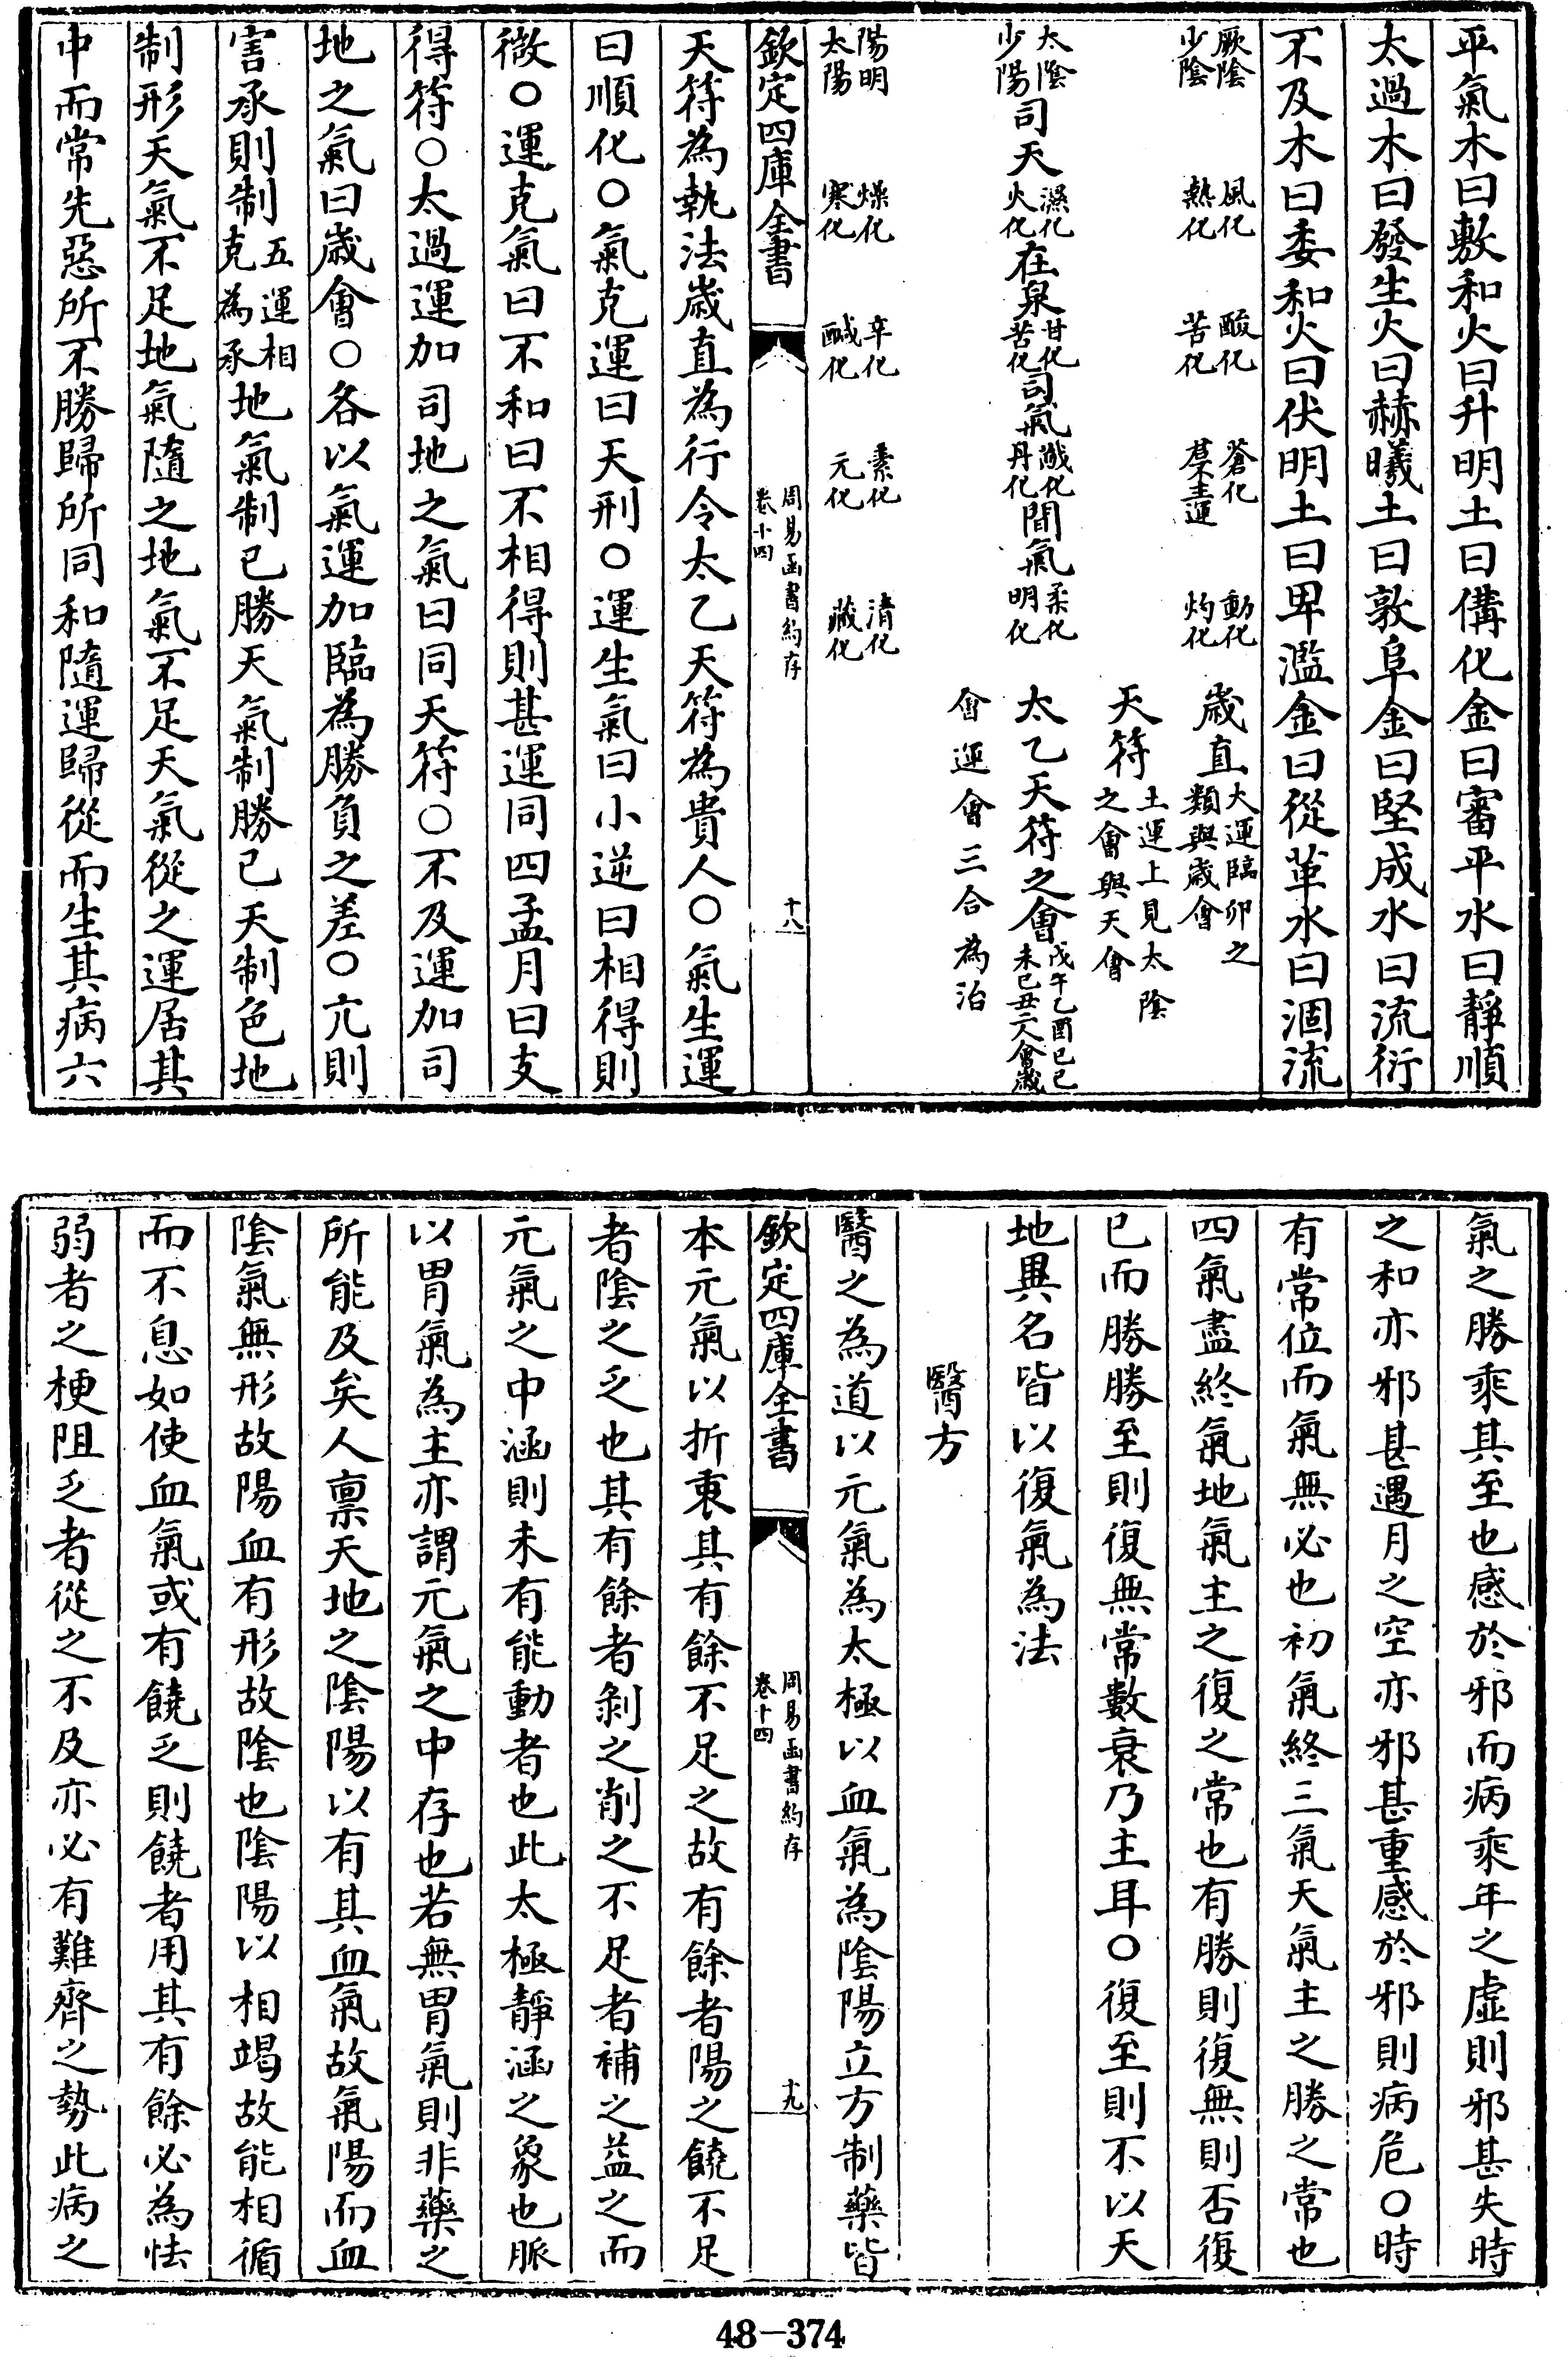 平氣木曰敷和火曰升明土曰備化金曰審平水曰靜順
太過木曰發生火曰赫曦土曰敦阜金曰堅成水曰流衍
不及木曰委和火曰伏明土曰卑濫金曰從革水曰涸流
厥陰 風化 酸化 蒼化 動化
少陰 熱化 苦化 灼化
歲直大運臨卯之
類與歲會
天符土運上見太陰
之會與天會
太陰 濕化 甘化 黅化 柔化
少陽 火化 苦化 丹化 明化
司天 在泉 司氣 間氣
太乙天符之會戊午乙酉己巳
未己丑二人會歲
會運會三合為治
陽明 燥化 辛化 素化 清化
太陽 寒化 鹹化 元化 藏化
欽定四庫全書
周易函書約存
卷十四
十八
天符為執法歲直為行令太乙天符為貴人○氣生運
曰順化○氣克運曰天刑○運生氣曰小逆曰相得則
微○運克氣曰不和曰不相得則甚運同四孟月曰支
得符○太過運加司地之氣曰同天符○不及運加司
地之氣曰歲會○各以氣運加臨為勝負之差○亢則
害承則制五運相
克為承地氣制已勝天氣制勝已天制色地
制形天氣不足地氣隨之地氣不足天氣從之運居其
中而常先惡所不勝歸所同和隨運歸從而生其病六
氣之勝乘其至也感於邪而病乘年之虛則邪甚失時
之和亦邪甚遇月之空亦邪甚重感於邪則病危○時
有常位而氣無必也初氣終三氣天氣主之勝之常也
四氣盡終氣地氣主之復之常也有勝則復無則否復
已而勝勝至則復無常數衰乃主耳○復至則不以天
地異名皆以復氣為法
醫方
醫之為道以元氣為太極以血氣為陰陽立方制藥皆
欽定四庫全書
周易函書約存
卷十四
十九
本元氣以折衷其有餘不足之故有餘者陽之饒不足
者陰之乏也其有餘者剝之削之不足者補之益之而
元氣之中涵則未有能動者也此太極靜涵之象也脈
以胃氣為主亦謂元氣之中存也若無胃氣則非藥之
所能及矣人稟天地之陰陽以有其血氣故氣陽而血
陰氣無形故陽血有形故陰也陰陽以相竭故能相循
而不息如使血氣或有饒乏則饒者用其有餘必為怯
弱者之梗阻乏者從之不及亦必有難齊之勢此病之
48-374